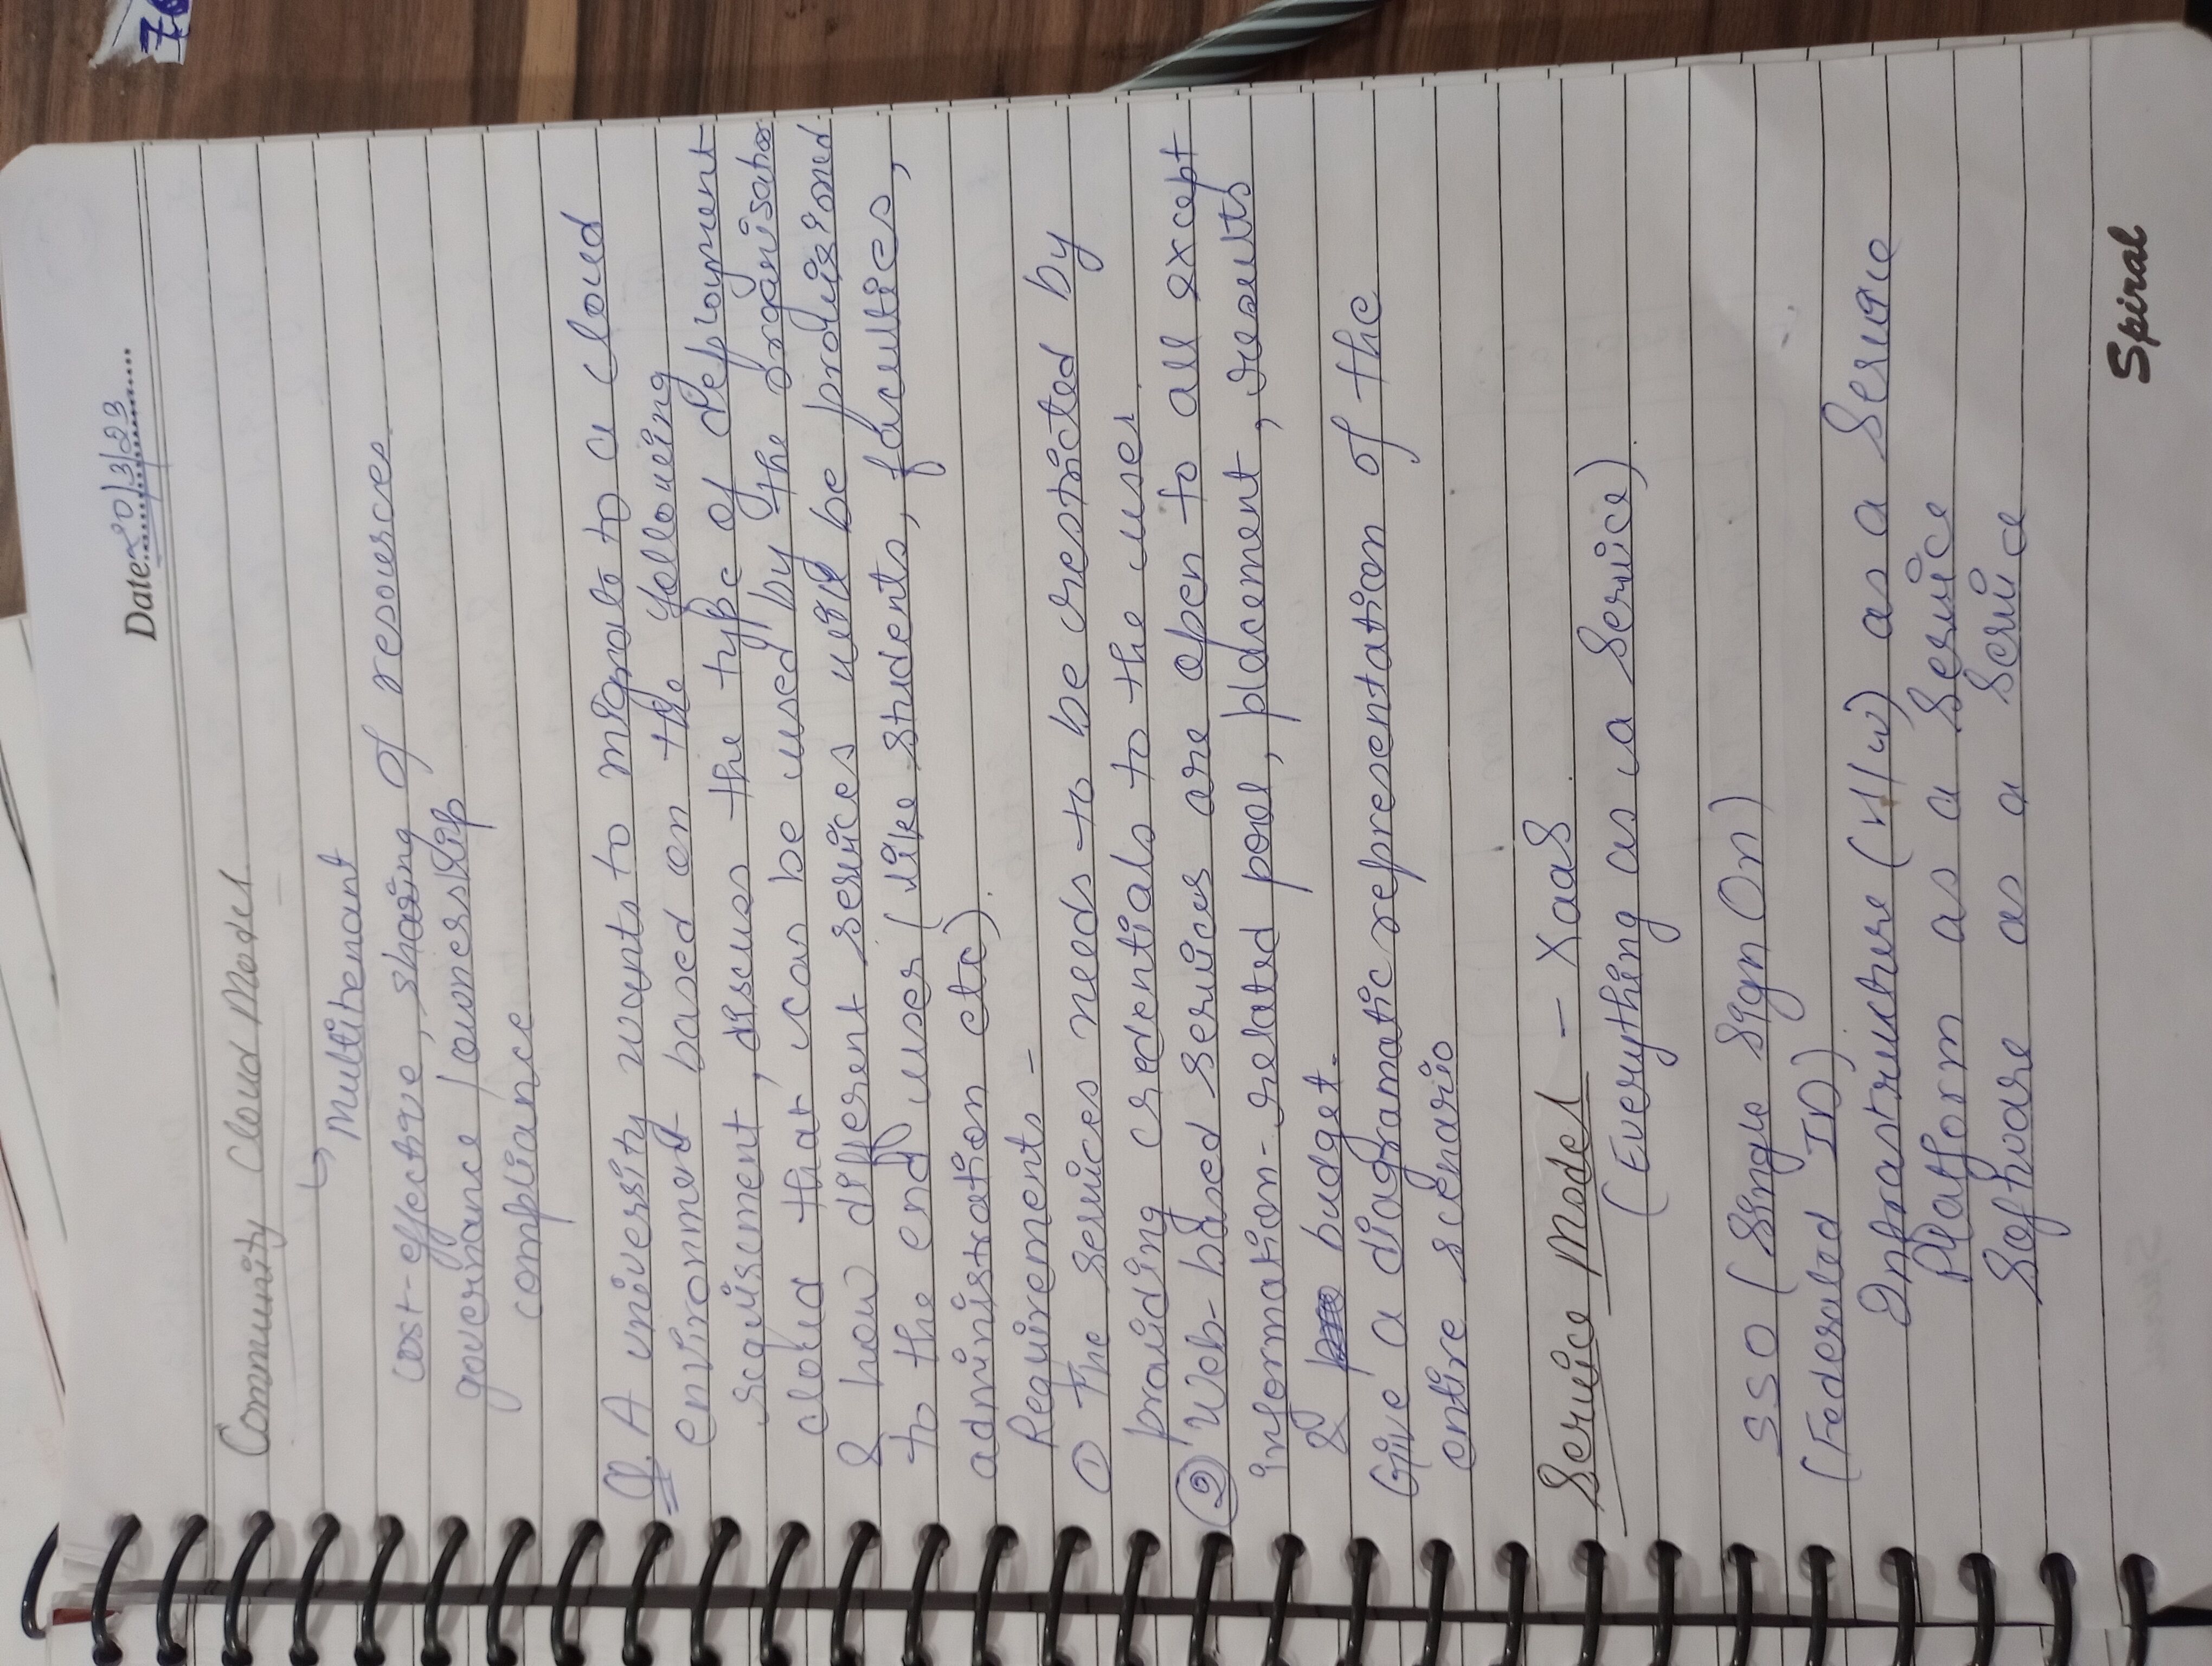 Date: 20/3/23
Community Cloud Model
↳ Multitenant
cost-effective, sharing of resources
governance/ownership
compliance
Q. A university wants to migrate to a cloud
environment based on the following
requirement, discuss the type of deployment
cloud that can be used by the organisation
& how different services will be provisioned
to the end user (like students, faculties,
administration etc).
Requirements -
① The services needs to be restricted by
providing credentials to the user
② Web-based services are open to all except
information-related pool, placement, results
& budget.
Give a diagrammatic representation of the
entire scenario
Service Model - XaaS
(Everything as a Service)
SSO (Single Sign On)
(Federated ID)
Infrastructure (H/w) as a Service
Platform as a Service
Software as a Service
Spiral